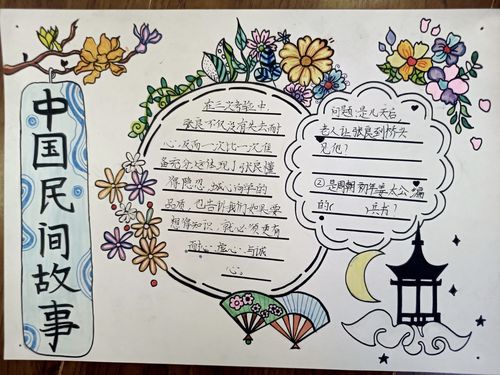 中国民间故事
在三次考验中,
张良不仅没有失去耐
心,反而一次比一次准
备充分,这体现了张良懂
得隐忍,诚心向学的
品质,也告诉我们如果要
想得知识,就必须要有
耐心、虚心、与诚
心。
问题:是几天后
老人让张良到桥头
见他?
②是周朝初年姜太公编
的( )兵书?